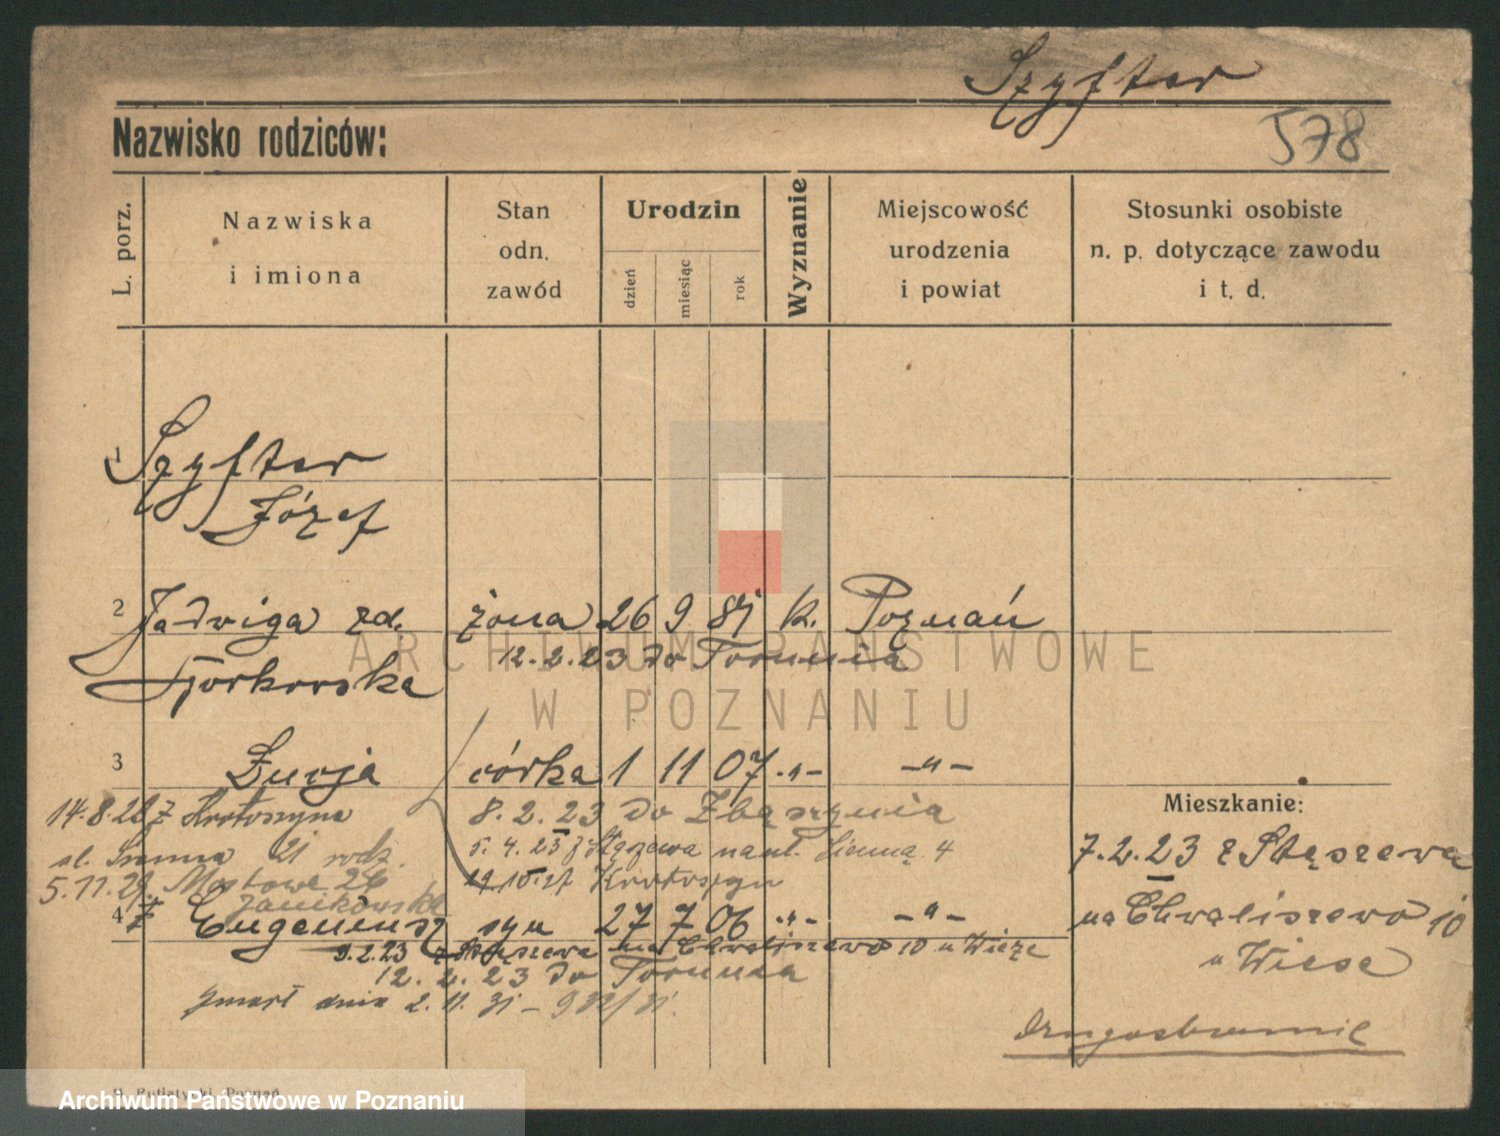 Szyfter
578
Nazwisko rodziców:
L. porz.
Nazwiska
i imiona
Stan
odn.
zawód
Urodzin
dzień
miesiąc
rok
Wyznanie
Miejscowość
urodzenia
i powiat
Stosunki osobiste
n. p. dotyczące zawodu
i t. d.
1 Szyfter
Józef
2 Jadwiga zd. żona 26 9 81 k. Poznań
12.2.23 do Torunia
Gorkowska
3 Łucja córka 1 11 07 -"- -"-
14.8.28 z Krotoszyna
8.2.23 do Zbąszynia
21 rodz.
5.4.23 z Stęszewa na ul. Sienną 4
5.11.29. Mostowa
Krotoszyn
Janikowska
4 Eugeniusz syn 27 7 06 -"- -"-
9.2.23 z Stęszewa na Chwaliszewo 10 u Wieze
12.2.23 do Torunia
zmarł dnia 2.11.31 - 932/31.
Mieszkanie:
7.2.23 z Stęszewa
na Chwaliszewo 10
u Wiese
ARCHIWUM PAŃSTWOWE
W POZNANIU
Poznań
Archiwum Państwowe w Poznaniu